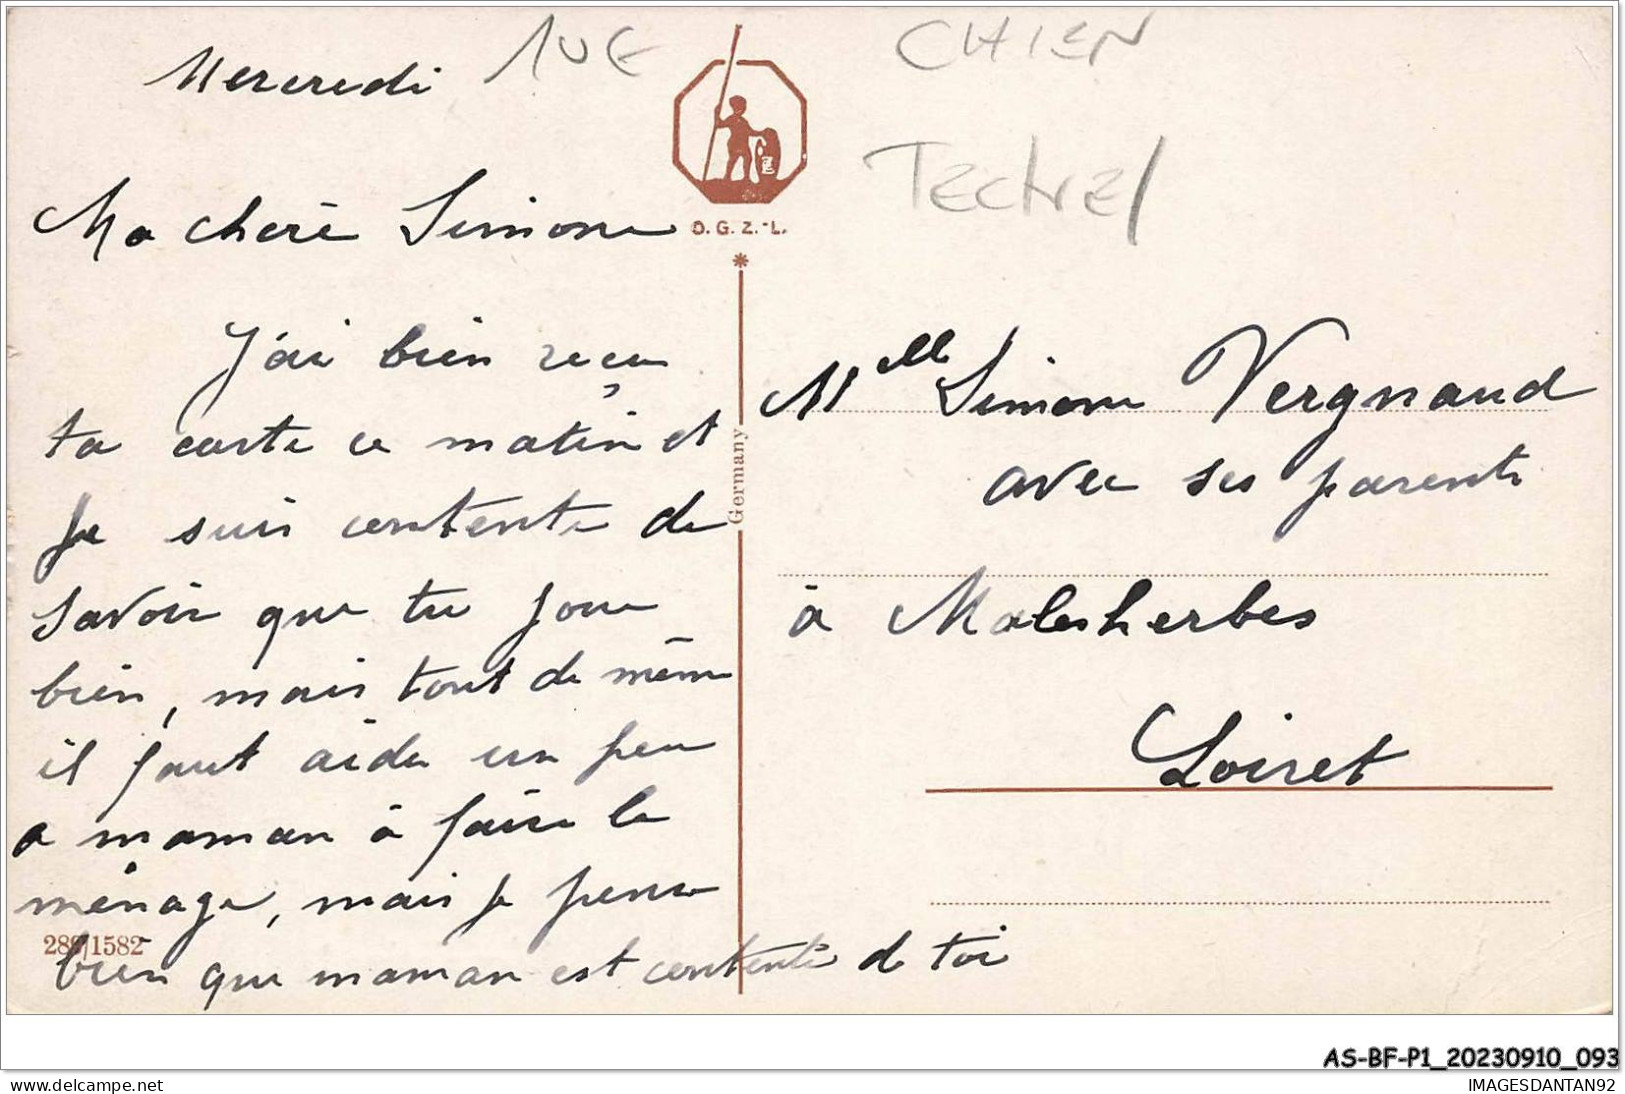 Mercredi
10€
CHIEN
TECKEL
Ma chère Simone
O.G.Z.-L.
J'ai bien reçu
ta carte ce matin et
je suis contente de
savoir que tu joue
bien, mais tout de même
il faut aider un peu
a maman à faire le
ménage, mais je pense
bien que maman est contente de toi
286/1582
Germany
Melle Simone Vergnaud
avec ses parents
à Malesherbes
Loiret
AS-BF-P1_20230910_093
delcampe.net
IMAGESDANTAN92